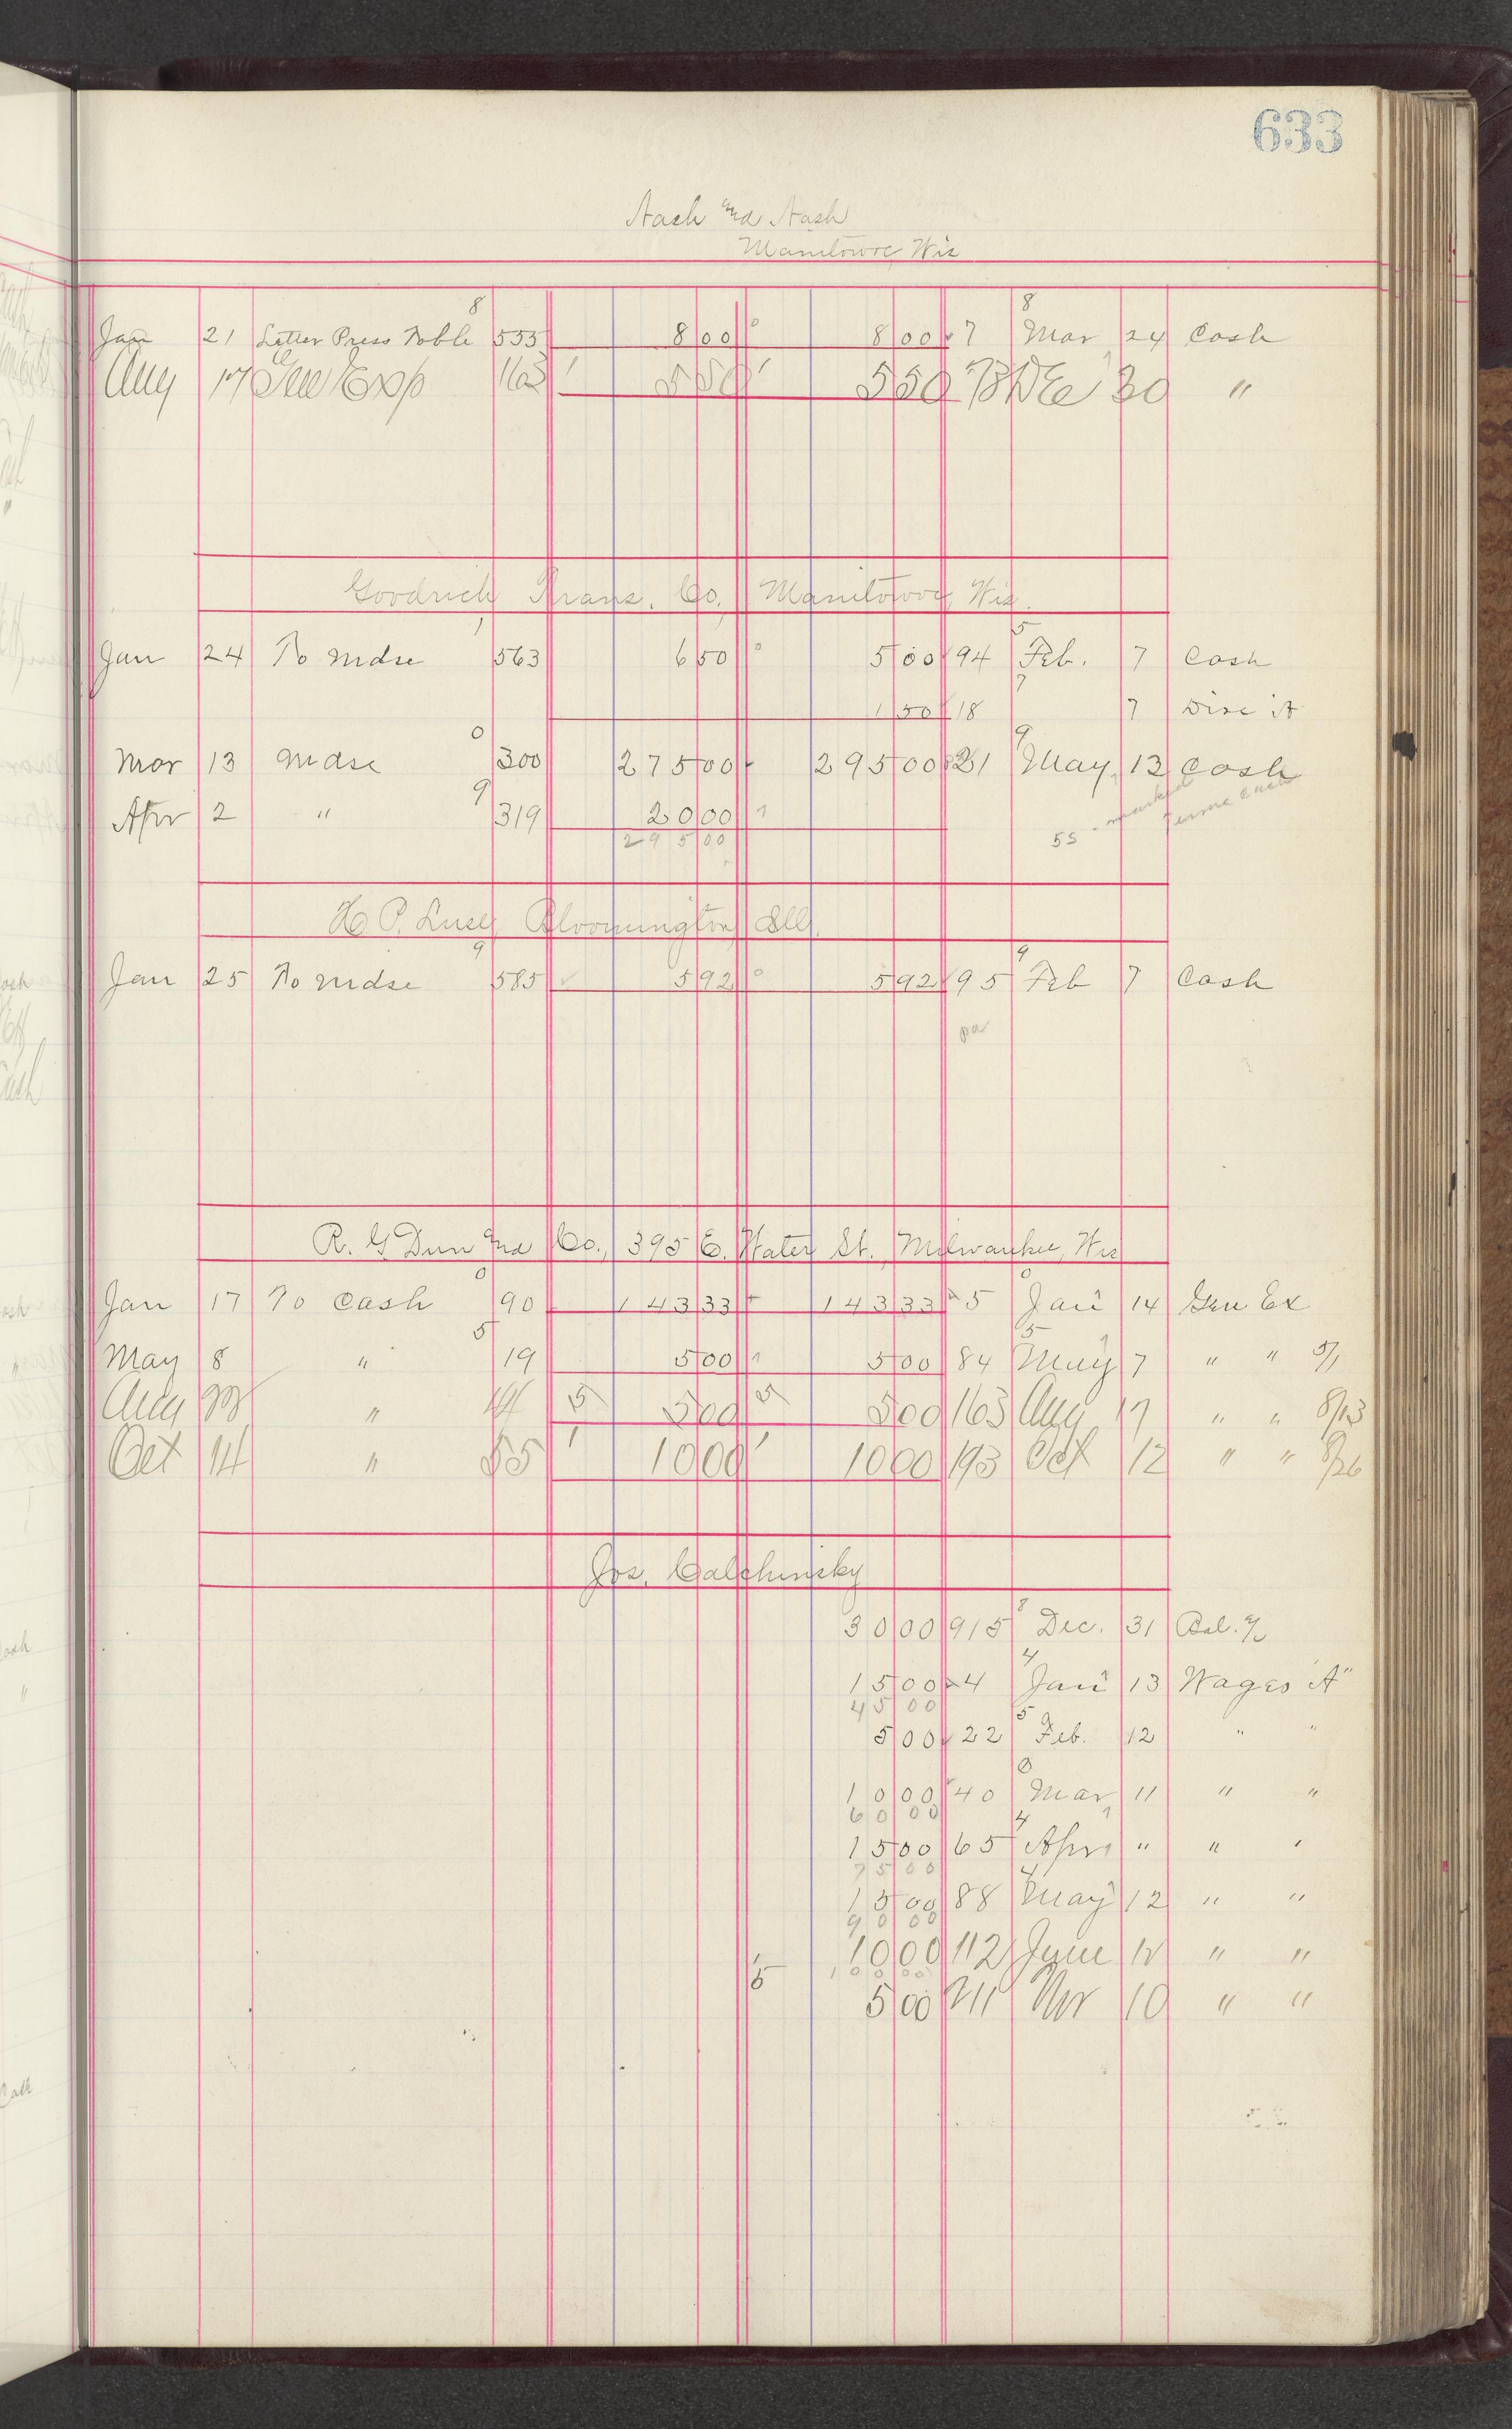 633
Nash and Nash
Manitowoc, Wis
8 8
Jan 21 Letter Press Table 555 8 00 8 00 7 Mar 24 Cash
Aug 17 Gen Exp 163 5 50 5 50 73 Dec 30 "
Goodrich Trans. Co., Manitowoc, Wis.
1 5
Jan 24 To Mdse 563 6 50 5 00 94 Feb. 7 Cash
7
1 50 18 7 Disc it
0 9
Mar 13 Mdse 300 275 00 295 00 21 May 13 Cash
9
Apr 2 " 319 20 00 5s - marked
295 00 terms cash
H. P. Lusey Bloomington Ill.
9 9
Jan 25 To Mdse 585 5 92 5 92 95 Feb 7 Cash
pa
R. G Dun and Co., 395 E. Water St., Milwaukee, Wis
0 0
Jan 17 To Cash 90 143 33 143 33 5 Jan 14 Gen Ex
5 5
May 8 " 19 5 00 5 00 84 May 7 " " 5/1
Aug 28 " 41 5 5 00 5 5 00 163 Aug 17 " " 8/13
Oct 14 " 55 1 10 00 1 10 00 193 Oct 12 " " 8/26
Jos. Calchinsky
8
30 00 915 Dec. 31 Bal. a/c
4
15 00 4 Jan 13 Wages "A"
45 00
5
5 00 22 Feb. 12 " "
0
10 00 40 Mar 11 " "
60 00
4
15 00 65 Apr " " "
75 00
4
15 00 88 May 12 " "
90 00
10 00 112 June 12 " "
100 00
5 5 00 211 Nov 10 " "